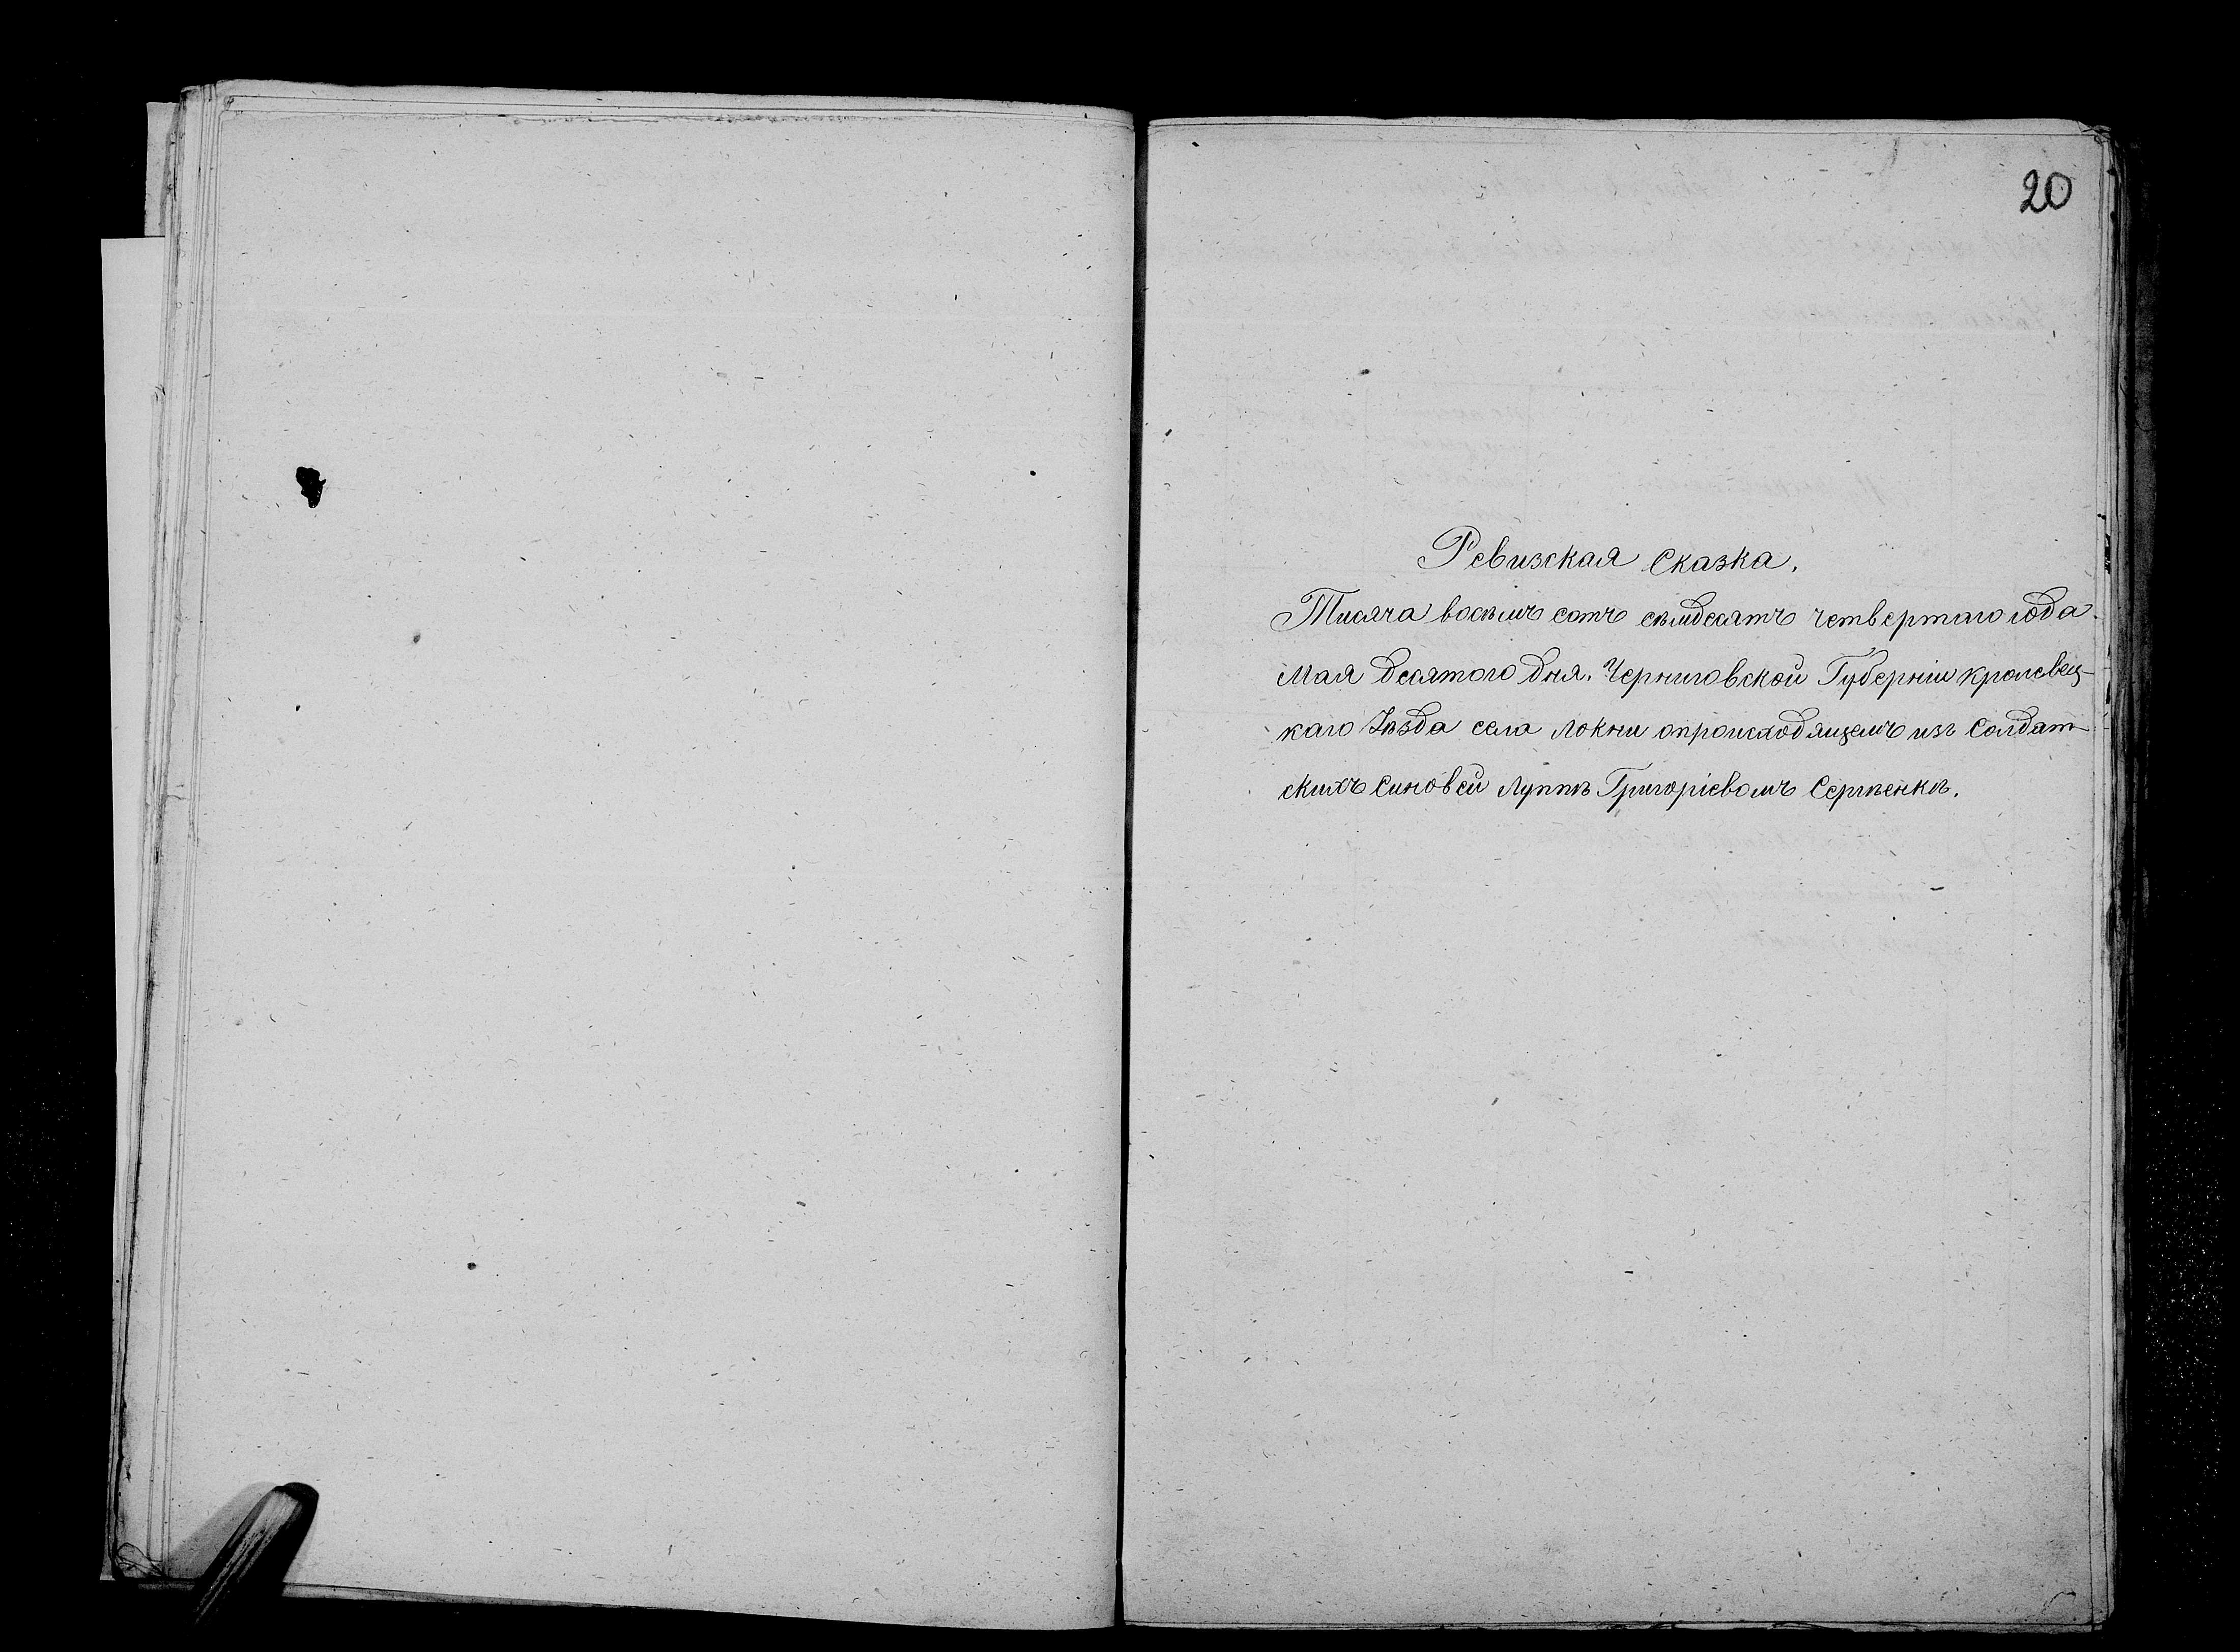 20
Ревизская Сказка.
Тисяча восемъ сотъ семдесятъ четвертаго года.
Мая десятого дня. Черниговской Губерніи кролевец-
каго Уѣзда села Локни опроисходящемъ изъ Солдат-
скихъ Синовей Луппѣ Григоріевомъ Сергѣенкѣ.